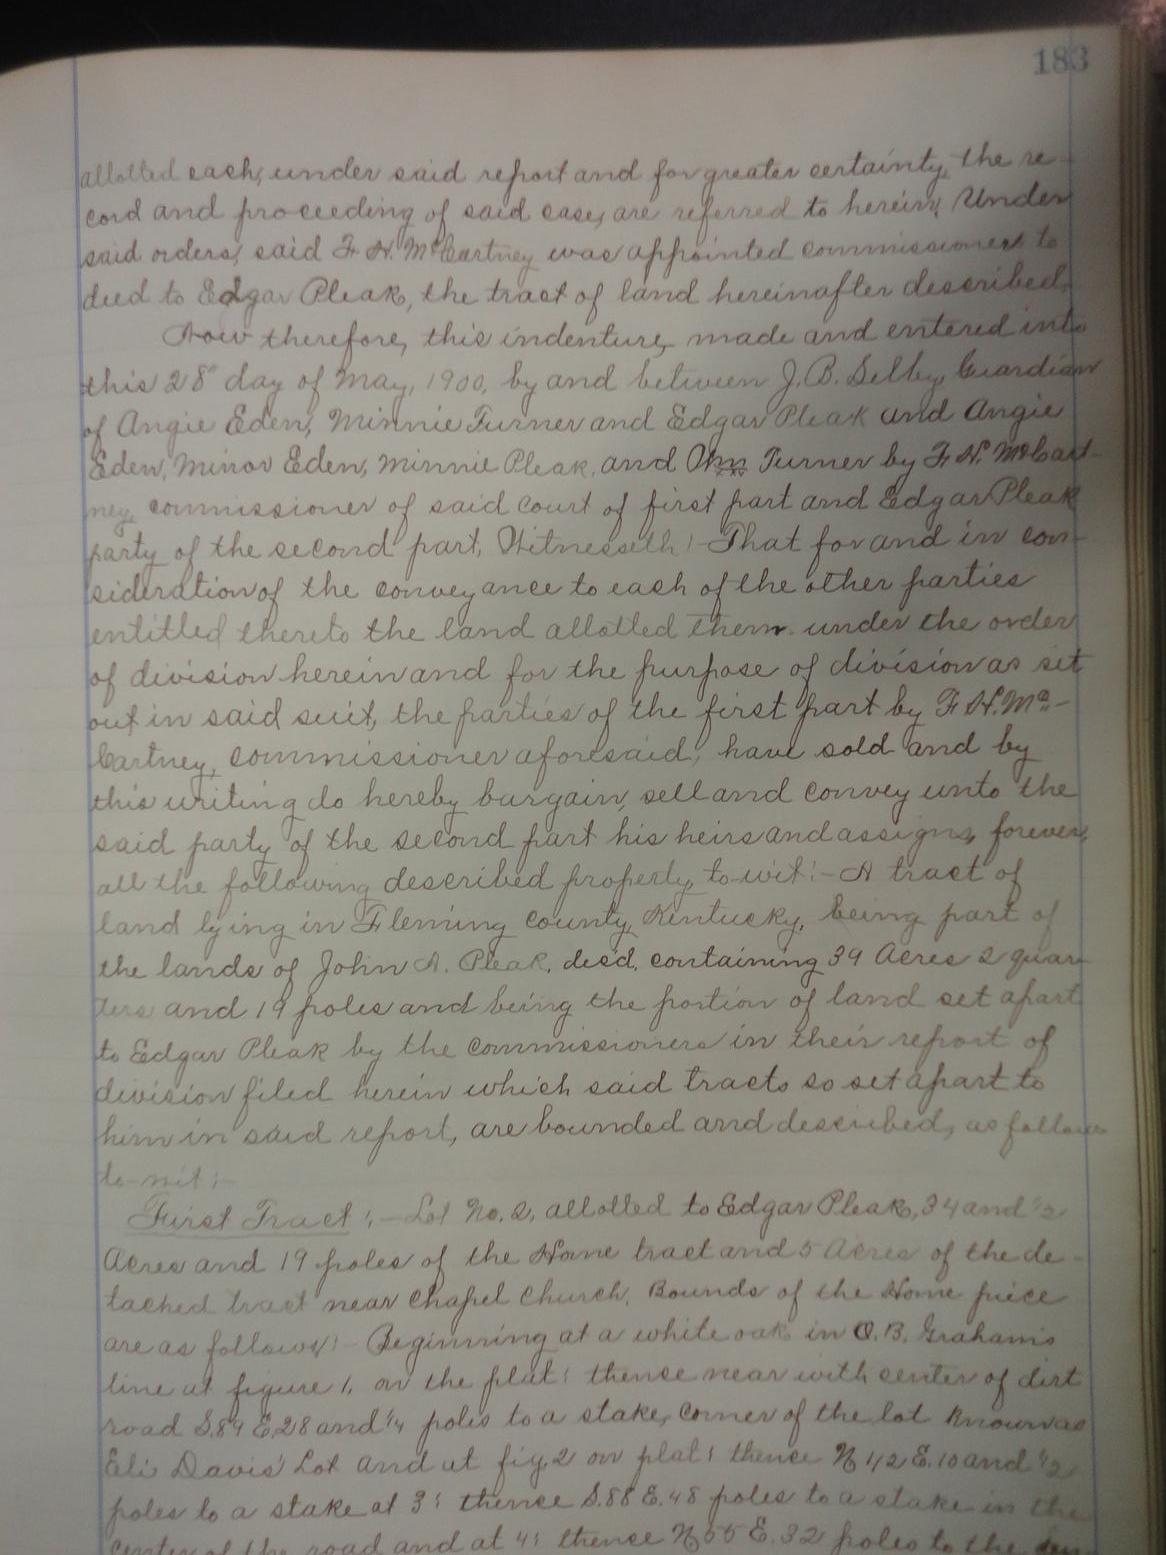 183
allotted each, under said report and for greater certainty, the re-
cord and proceeding of said case, are referred to herein, Under
said orders, said F. H. McCartney was appointed commissioner to
deed to Edgar Pleak, the tract of land hereinafter described.
Now therefore, this indenture, made and entered into
this 28" day of May, 1900, by and between J. B. Selby, Guardian
of Angie Eden, Minnie Turner and Edgar Pleak and Angie
Eden, Minor Eden, Minnie Pleak, and Turner by F. H. McCart-
ney, commissioner of said court of first part and Edgar Pleak
party of the second part, Witnesseth:- That for and in con-
sideration of the conveyance to each of the other parties
entitled thereto the land allotted them under the order
of division herein and for the purpose of division as set
out in said suit, the parties of the first part by F. H. Mc-
Cartney, commissioner aforesaid, have sold and by
this writing do hereby bargain, sell and convey unto the
said party of the second part his heirs and assigns, forever,
all the following described property, to-wit:- A tract of
land lying in Fleming County, Kentucky, being part of
the lands of John A. Pleak, des'd, containing 39 Acres 2 quar-
ters and 19 poles and being the portion of land set apart
to Edgar Pleak by the commissioners in their report of
division filed herein which said tracts so set apart to
him in said report, are bounded and described, as follows
to-wit:-
First Tract:- Lot No. 2, allotted to Edgar Pleak, 34 and 1/2
Acres and 19 poles of the Home tract and 5 Acres of the de-
tached tract near Chapel Church. Bounds of the Home piece
are as follows:- Beginning at a white oak in O. B. Graham's
line at figure 1, on the plat: thense near with center of dirt
road S. 89 E. 28 and 1/4 poles to a stake, corner of the lot known as
Eli Davis' Lot and at fig, 2 on plat: thense N 1/2 E. 10 and 1/2
poles to a stake at 3: thense S. 88 E. 48 poles to a stake in the
center of the road and at 4: thense N 55 E. 32 poles to the